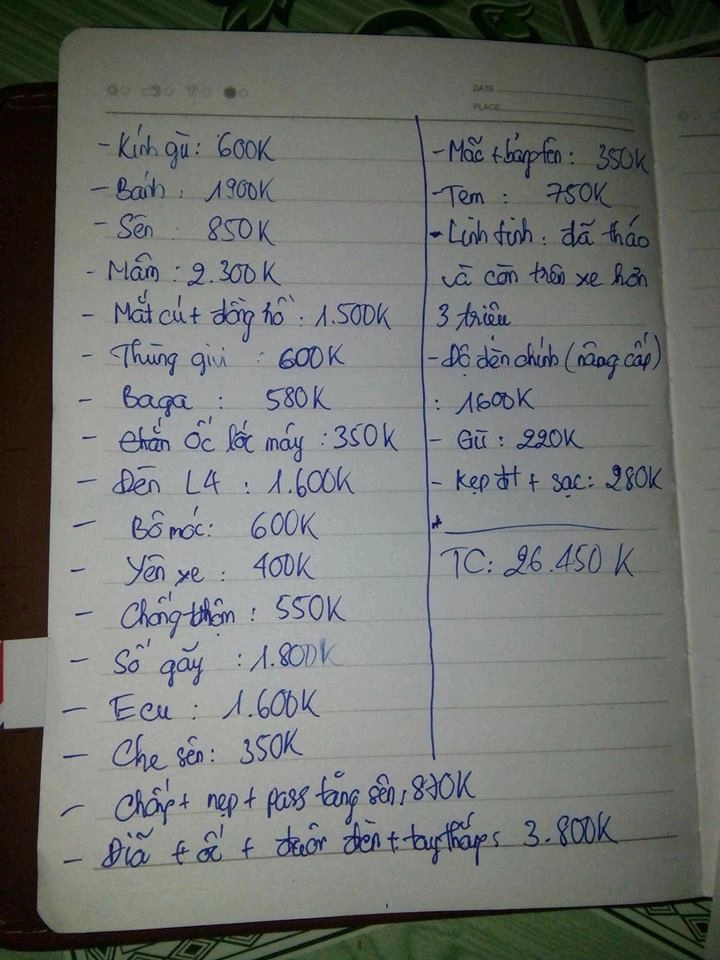 DATE
PLACE
- Kính gù: 600K
- Bánh: 1900K
- Sên: 850K
- Mâm: 2.300K
- Mắt cú + đồng hồ: 1.500K
- Thùng givi: 600K
- Baga: 580K
- ốc lốc máy: 350K
- Đèn L4: 1.600K
- Bô móc: 600K
- Yên xe: 400K
- Chống: 550K
- Số gãy: 1.800K
- Ecu: 1.600K
- Che sên: 350K
- Chấp + nẹp + pass tăng sên: 870K
- Đĩa + ốc + đuôi đèn + tay thắng: 3.800K
- Mắc + bảng tên: 350K
- Tem: 750K
- Linh tinh: đã tháo
và còn trên xe hơn
3 triệu
- Độ đèn chính (nâng cấp)
: 1600K
- Gù: 220K
- Kẹp đt + sạc: 280K
TC: 26.450 K